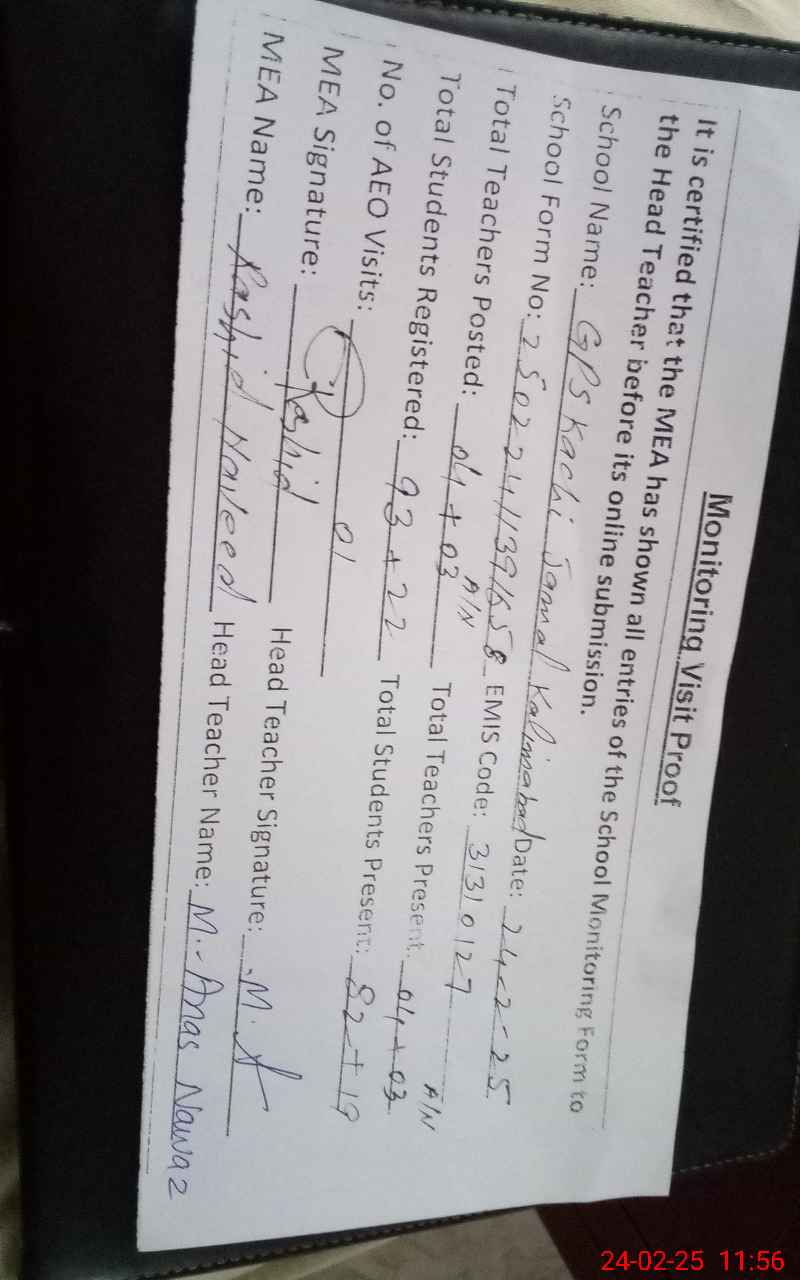 Monitoring Visit Proof
It is certified that the MEA has shown all entries of the School Monitoring Form to
the Head Teacher before its online submission.
School Name: GPS Kachi Jamal Kalimabad Date: 24-2-25
School Form No: 25022411391658 EMIS Code: 31310127
Total Teachers Posted: 04 + 03 A/N Total Teachers Present: 04 + 03 A/N
Total Students Registered: 93 + 22 Total Students Present: 82 + 19
No. of AEO Visits: 01
MEA Signature: Rashid Head Teacher Signature: M. A
MEA Name: Rashid Naveed Head Teacher Name: M. Anas Nawaz
24-02-25 11:56